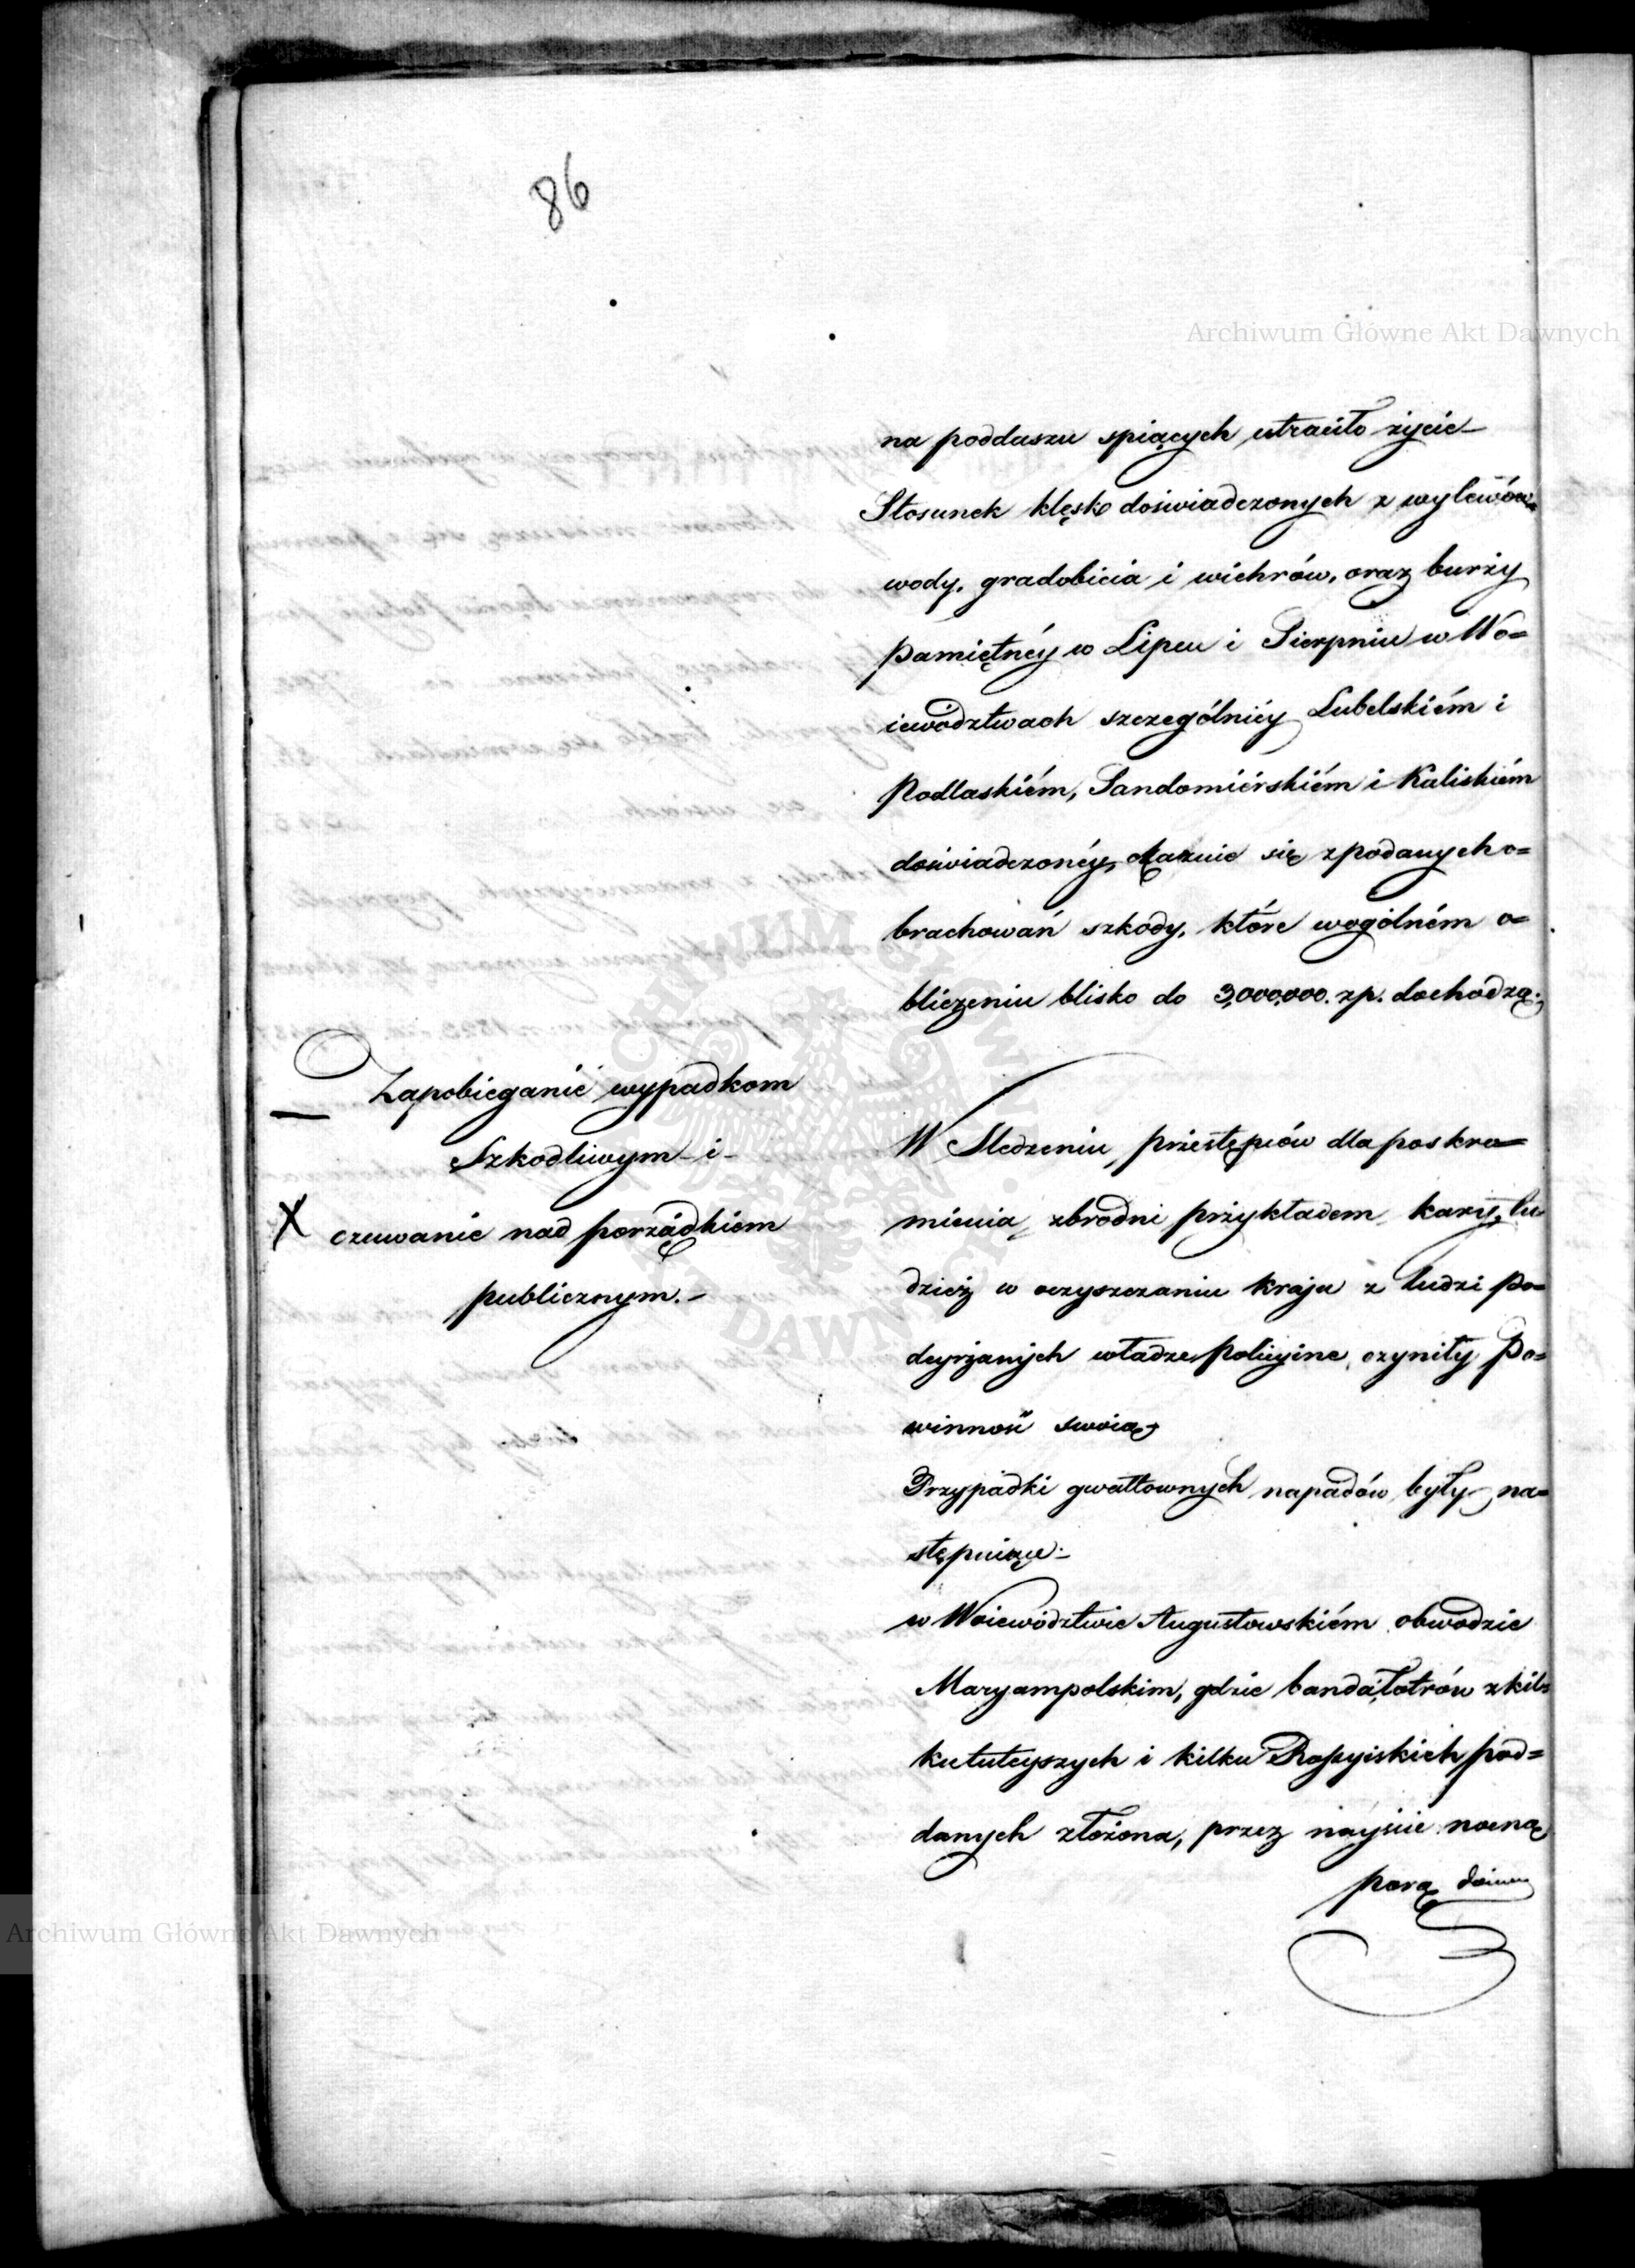 86
Archiwum Główne Akt Dawnych
na poddaszu spiących utraciło życie –
Stosunek klęsk doświadczonych z wylewów
wody, gradobicia i wichrów, oraz burzy
pamiętnéy w Lipcu i Sierpniu w Wo=
iewództwach szczególniéy Lubelskiém i
Podlaskiém, Sandomiérskiém i Kaliskiém
doświadczonéy, okazuie się z podanych o=
brachowań szkody, które wogólném o=
bliczeniu blisko do 3,000,000. zp. dochodzą.
Zapobieganie wypadkom
Szkodliwym – i –
X czuwanie nad porządkiem
publicznym. –
W Sledzeniu przestępców dla poskro=
mienia zbrodni przykładem kary, tu
dzież w oczyszczaniu kraju z ludzi po=
deyrzanych władze policyine czyniły Po=
winność swoią
Przypadki gwałtownych napadów były na=
stępuiące. –
w Woiewództwie Augustowskiém obwodzie
Maryampolskim, gdzie banda łotrów z kil=
ku tuteyszych i kilku Rossyiskich pod=
danych złożona, przez nayście nocną
porą domu
Archiwum Główne Akt Dawnych
ARCHIWUM GŁÓWNE AKT DAWNYCH